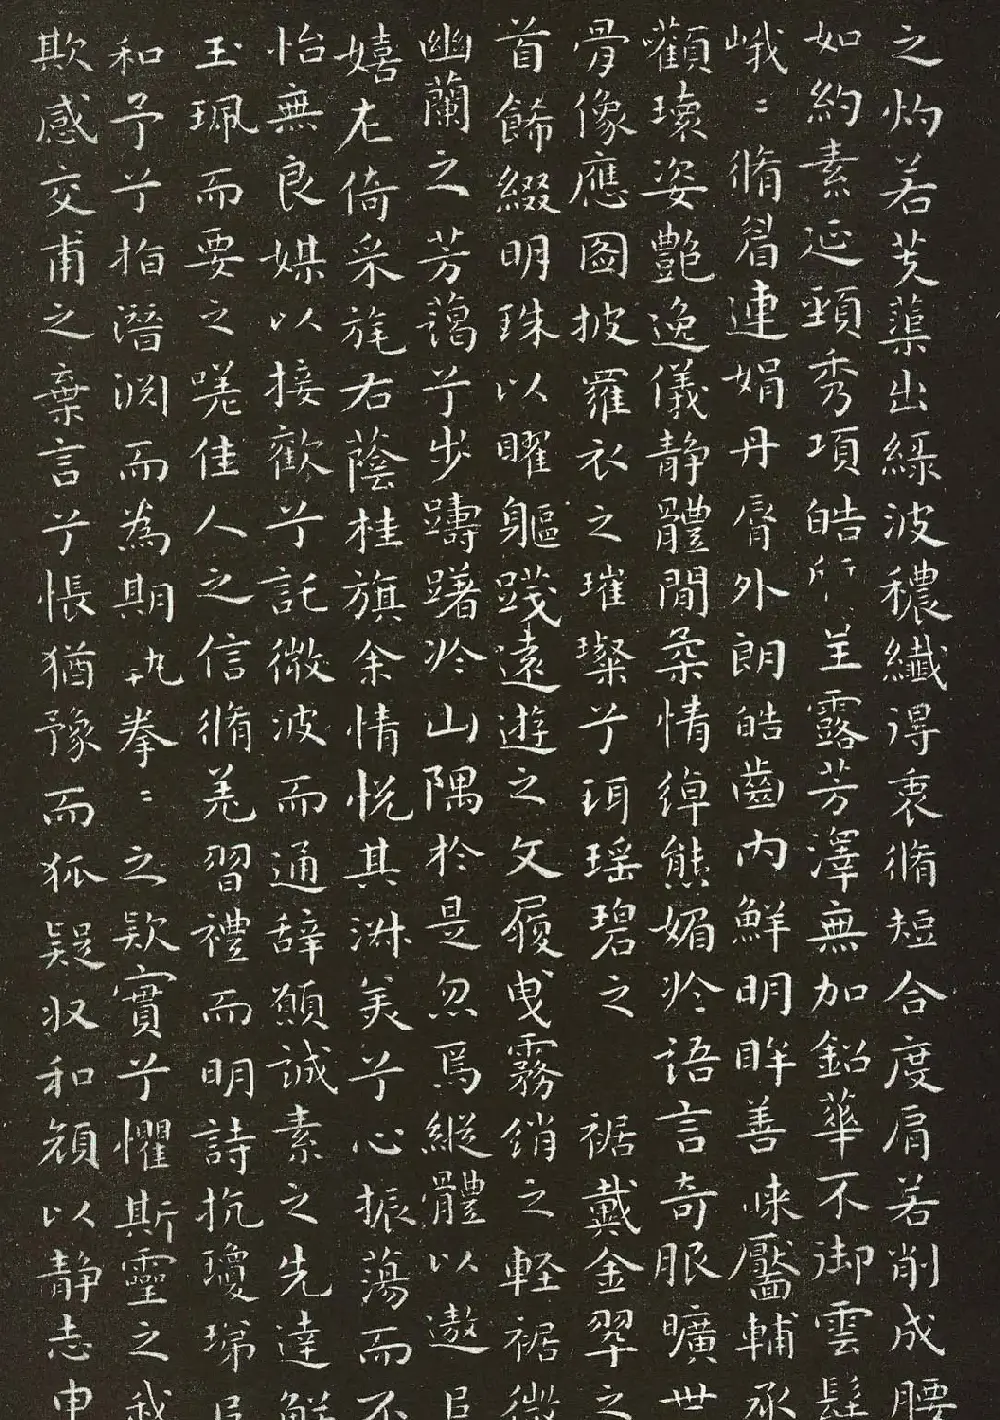 之灼若芙蕖出綠波穠纖得衷脩短合度肩若削成腰
如約素延頸秀項皓呈露芳澤無加鈆華不御雲髻
峩〻脩眉連娟丹脣外朗皓齒內鮮明眸善睞靨輔承
權瓌姿艷逸儀靜體閒柔情綽態媚於語言奇服曠世
骨像應圖披羅衣之璀璨兮珥瑤碧之裾戴金翠之
首飾綴明珠以曜軀踐遠遊之文履曳霧綃之輕裾微
幽蘭之芳藹兮步躊躇於山隅於是忽焉縱體以遨
嬉左倚采旄右蔭桂旗余情悅其淑美兮心振蕩而不
怡無良媒以接歡兮託微波而通辭願誠素之先達解
玉珮而要之嗟佳人之信脩羌習禮而明詩抗瓊珶
和予兮指潛淵而為期執拳〻之款實兮懼斯靈之我
欺感交甫之棄言兮悵猶豫而狐疑收和顏以靜志申